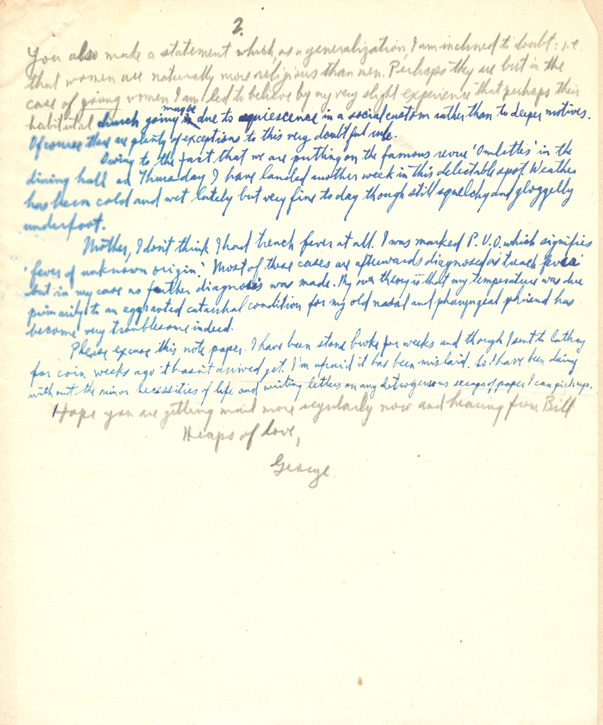 2.
You also make a statement which, as a generalization, I am inclined to doubt: i.e.
that women are naturally more religious than men. Perhaps they are but in the
case of young women I am led to believe by my very slight experience that perhaps their
habitual church going maybe is due to aquiescence in a social custom rather than to deeper motives.
Of course there are plenty of exceptions to this very doubtful rule.
Owing to the fact that we are putting on the famous revue 'Omlettes' in the
dining hall on Thursday I have landed another week in this delectable spot. Weather
has been cold and wet lately but very fine today though still squelchy and gloggelly
underfoot.
Mother, I don't think I had trench fever at all. I was marked P.U.O. which signifies
'fever of unknown origin'. Most of these cases are afterwards diagnosed as 'trench fever'
but in my case no further diagnosis was made. My own theory is that my temperature was due
primarily to an aggravated catarrhal condition for my old nasal and pharyngeal phriend has
become very troublesome indeed.
Please excuse this note paper. I have been stone broke for weeks and though I sent to
for coin weeks ago it hasn't arrived yet. I'm afraid it has been mislaid. So I have been doing
without the minor necessities of life and writing letters on any hetrogenous scraps of paper I can pick up.
Hope you are getting mail more regularly now and hearing from Bill
Heaps of love,
George.